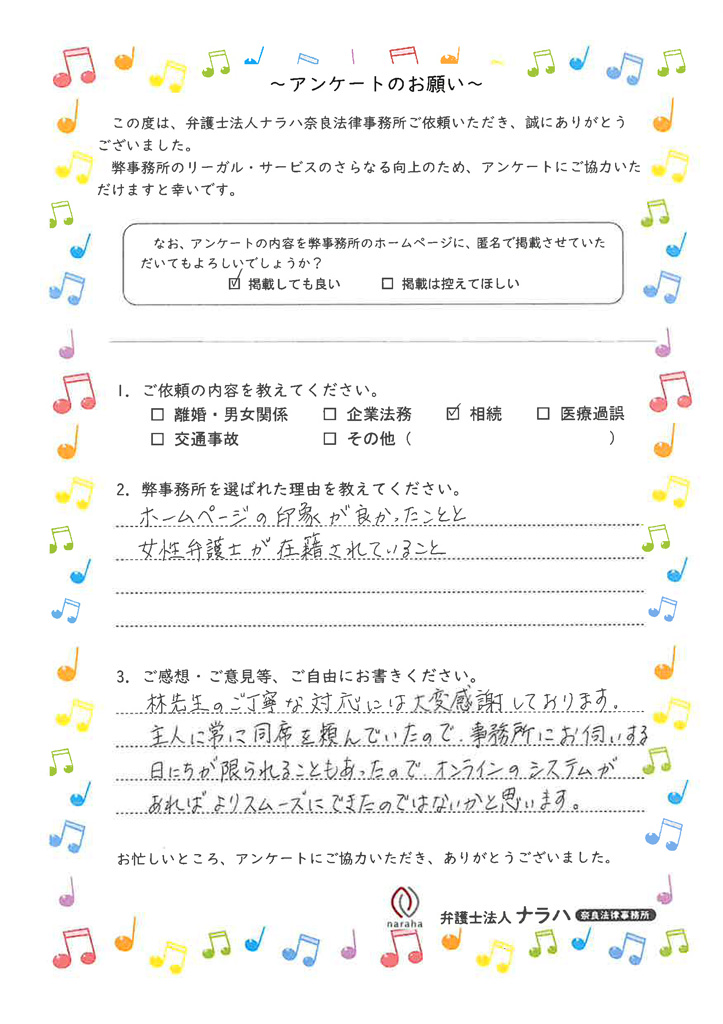 ～アンケートのお願い～
この度は、弁護士法人ナラハ奈良法律事務所ご依頼いただき、誠にありがとう
ございました。
弊事務所のリーガル・サービスのさらなる向上のため、アンケートにご協力いた
だけますと幸いです。
なお、アンケートの内容を弊事務所のホームページに、匿名で掲載させていた
だいてもよろしいでしょうか？
☑ 掲載しても良い　□ 掲載は控えてほしい
1．ご依頼の内容を教えてください。
□ 離婚・男女関係　□ 企業法務　☑ 相続　□ 医療過誤
□ 交通事故　□ その他（　）
2．弊事務所を選ばれた理由を教えてください。
ホームページの印象が良かったことと
女性弁護士が在籍されていること
3．ご感想・ご意見等、ご自由にお書きください。
林先生のご丁寧な対応には大変感謝しております。
主人に常に同席を頼んでいたので、事務所にお伺いする
日にちが限られることもあったので、オンラインのシステムが
あればよりスムーズにできたのではないかと思います。
お忙しいところ、アンケートにご協力いただき、ありがとうございました。
naraha 弁護士法人ナラハ 奈良法律事務所